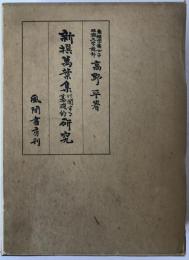 高野 平著
新撰萬葉集に関する基礎的研究
風間書房刊